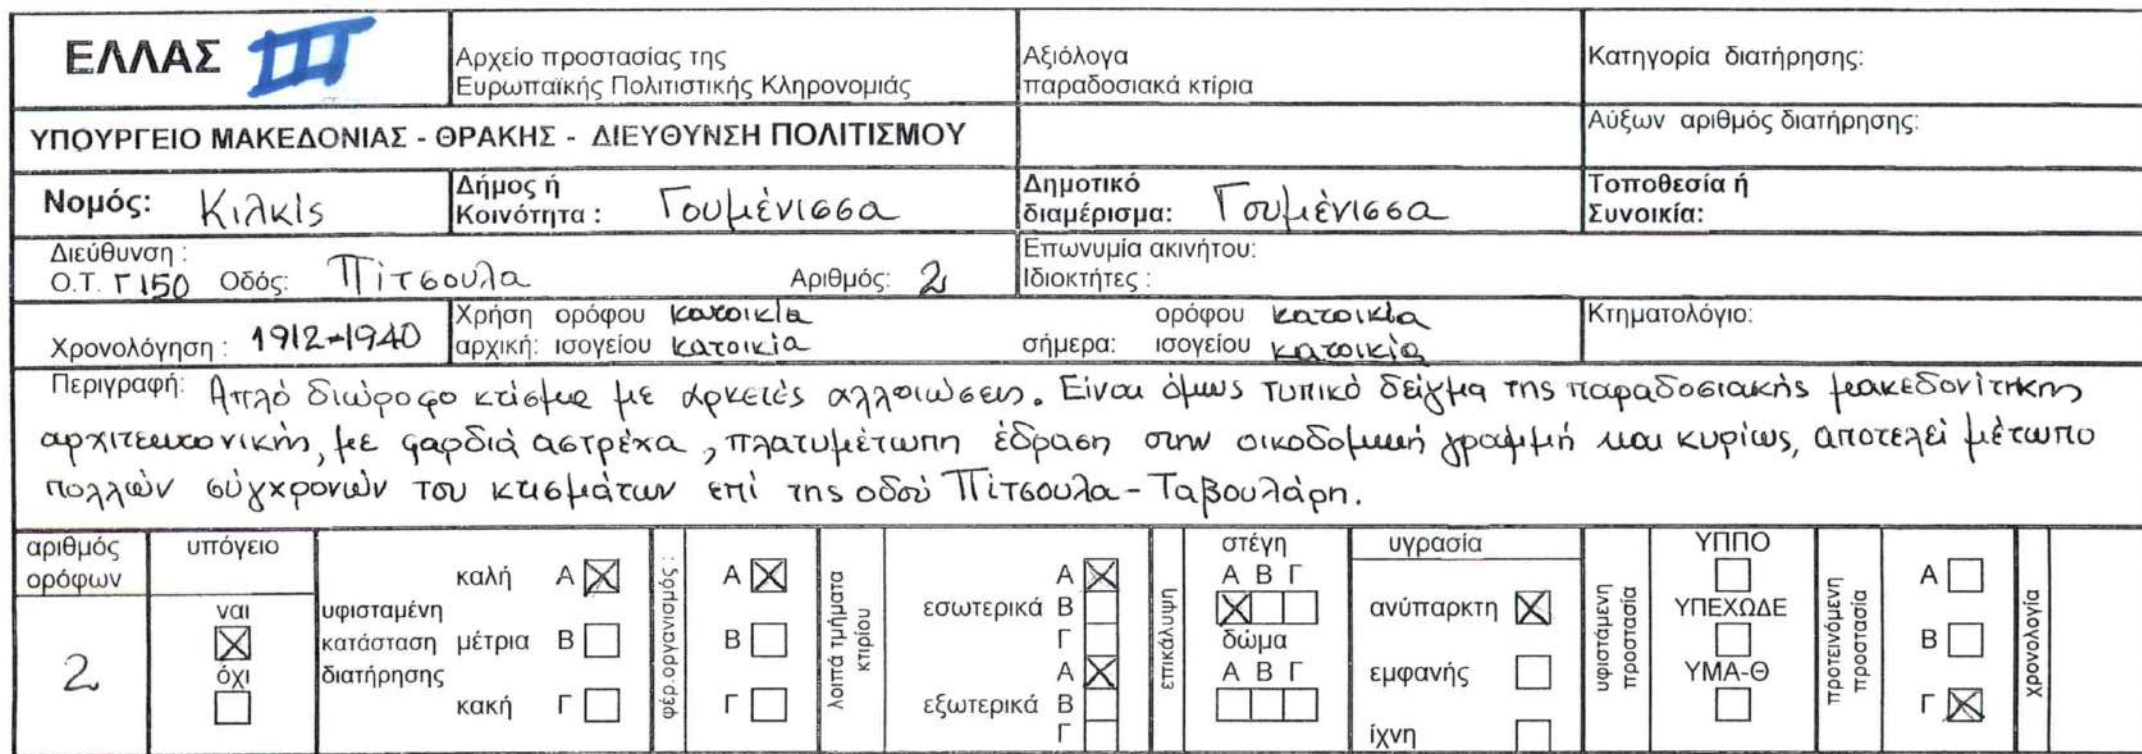 ΕΛΛΑΣ III
Αρχείο προστασίας της
Ευρωπαϊκής Πολιτιστικής Κληρονομιάς
Αξιόλογα
παραδοσιακά κτίρια
Κατηγορία διατήρησης:
ΥΠΟΥΡΓΕΙΟ ΜΑΚΕΔΟΝΙΑΣ - ΘΡΑΚΗΣ - ΔΙΕΥΘΥΝΣΗ ΠΟΛΙΤΙΣΜΟΥ
Αύξων αριθμός διατήρησης:
Νομός: Κιλκίς
Δήμος ή
Κοινότητα : Γουμένισσα
Δημοτικό
διαμέρισμα: Γουμένισσα
Τοποθεσία ή
Συνοικία:
Διεύθυνση :
Ο.Τ. Γ150 Οδός: Πίτσουλα Αριθμός: 2
Επωνυμία ακινήτου:
Ιδιοκτήτες :
Χρονολόγηση : 1912-1940
Χρήση ορόφου κατοικία
αρχική: ισογείου κατοικία
ορόφου κατοικία
σήμερα: ισογείου κατοικία
Κτηματολόγιο:
Περιγραφή: Απλό διώροφο κτίσμα με αρκετές αλλοιώσεις. Είναι όμως τυπικό δείγμα της παραδοσιακής μακεδονίτικης
αρχιτεκτονικής, με φαρδιά αστρέχα, πλατυμέτωπη έδραση στην οικοδομική γραμμή και κυρίως, αποτελεί μέτωπο
πολλών σύγχρονών του κτισμάτων επί της οδού Πίτσουλα - Ταβουλάρη.
αριθμός
ορόφων
2
υπόγειο
ναι
όχι
υφισταμένη
κατάσταση
διατήρησης
καλή Α
μέτρια Β
κακή Γ
φέρ.οργανισμός :
Α
Β
Γ
λοιπά τμήματα
κτιρίου
εσωτερικά
Α
Β
Γ
εξωτερικά
Α
Β
Γ
επικάλυψη
στέγη
Α Β Γ
δώμα
Α Β Γ
υγρασία
ανύπαρκτη
εμφανής
ίχνη
υφιστάμενη
προστασία
ΥΠΠΟ
ΥΠΕΧΩΔΕ
ΥΜΑ-Θ
προτεινόμενη
προστασία
Α
Β
Γ
χρονολογία